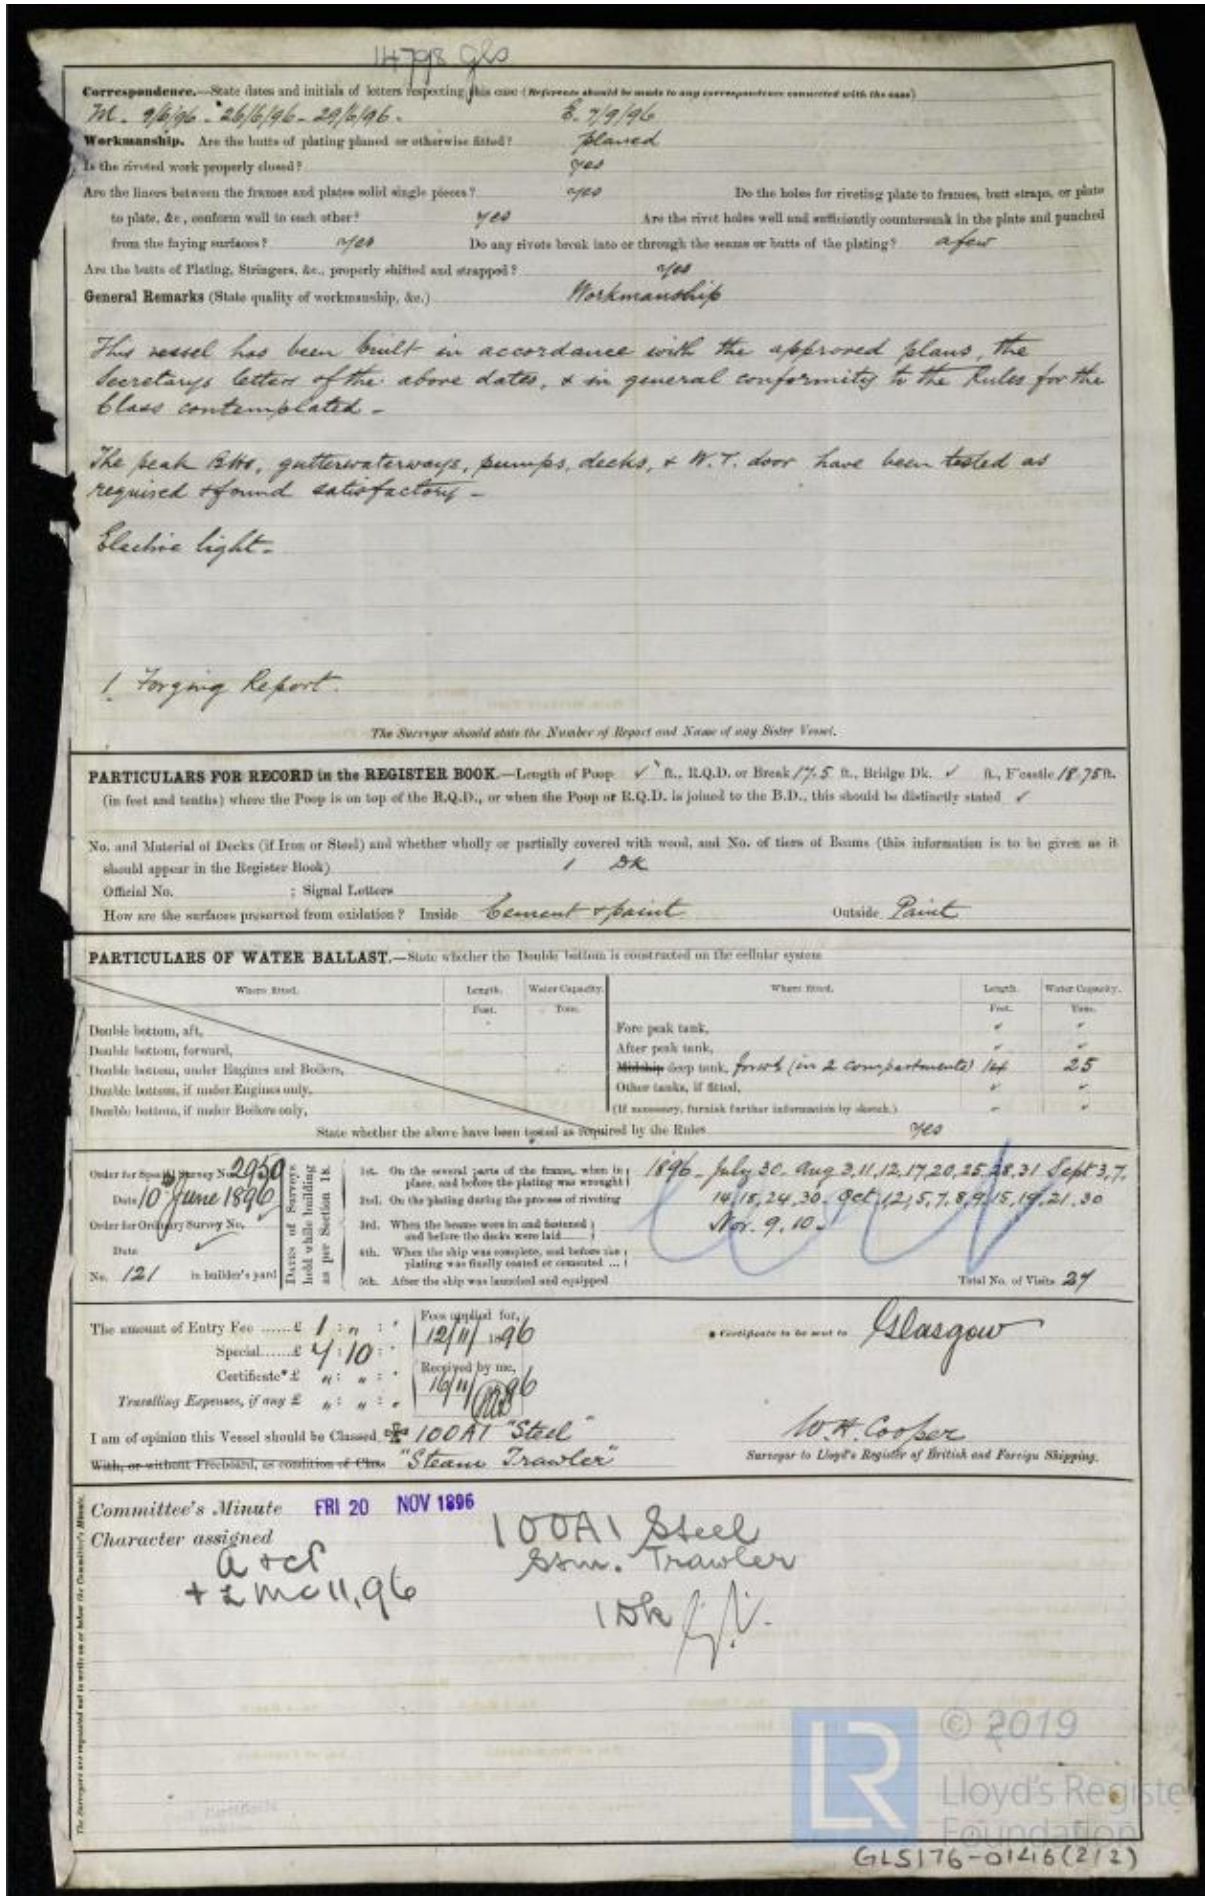 14798 Gls
Correspondence.—State dates and initials of letters respecting this case (Reference should be made to any correspondence connected with the case)
M. 9/6/96 . 26/6/96 - 29/6/96 - E. 7/9/96
Workmanship. Are the butts of plating planed or otherwise fitted? planed
Is the riveted work properly closed? yes
Are the liners between the frames and plates solid single pieces? yes Do the holes for riveting plate to frames, butt straps, or plate
to plate, &c., conform well to each other? yes Are the rivet holes well and sufficiently countersunk in the plate and punched
from the faying surfaces? yes Do any rivets break into or through the seams or butts of the plating? a few
Are the butts of Plating, Stringers, &c., properly shifted and strapped? yes
General Remarks (State quality of workmanship, &c.) Workmanship
This vessel has been built in accordance with the approved plans, the
Secretarys letters of the above dates, & in general conformity to the Rules for the
Class contemplated -
The peak BHs, gutterwaterways, pumps, decks, & W.T. door have been tested as
required & found satisfactory -
Electric light -
1 Forging Report.
The Surveyor should state the Number of Report and Name of any Sister Vessel.
PARTICULARS FOR RECORD in the REGISTER BOOK.—Length of Poop ✓ ft., R.Q.D. or Break 17.5 ft., Bridge Dk. ✓ ft., F'castle 18.75 ft.
(in feet and tenths) where the Poop is on top of the R.Q.D., or when the Poop or R.Q.D. is joined to the B.D., this should be distinctly stated ✓
No. and Material of Decks (if Iron or Steel) and whether wholly or partially covered with wood, and No. of tiers of Beams (this information is to be given as it
should appear in the Register Book) 1 Dk
Official No. ; Signal Letters
How are the surfaces preserved from oxidation? Inside Cement & paint Outside Paint
PARTICULARS OF WATER BALLAST.—State whether the Double bottom is constructed on the cellular system
Where fitted. Length. Water Capacity. Where fitted. Length. Water Capacity.
Feet. Tons. Feet. Tons.
Double bottom, aft, Fore peak tank,
Double bottom, forward, After peak tank,
Double bottom, under Engines and Boilers, Midship deep tank, forwd (in 2 compartments) 14 25
Double bottom, if under Engines only, Other tanks, if fitted,
Double bottom, if under Boilers only, (If necessary, furnish further information by sketch.)
State whether the above have been tested as required by the Rules yes
Order for Special Survey No. 2959
Date 10th June 1896
Order for Ordinary Survey No.
Date
No. 121 in builder's yard
Dates of Surveys held while building as per Section 18.
1st. On the several parts of the frame, when in place, and before the plating was wrought
2nd. On the plating during the process of riveting
3rd. When the beams were in and fastened and before the decks were laid
4th. When the ship was complete, and before the plating was finally coated or cemented ...
5th. After the ship was launched and equipped
1896 - July 30. Aug 3, 11, 12, 17, 20, 25, 28, 31 Sept 3, 7,
14, 18, 24, 30. Oct 1, 2, 5, 7, 8, 9, 15, 19, 21, 30
Nov. 9, 10.
Total No. of Visits 27
The amount of Entry Fee ......£ 1 : " : "
Special......£ 4 : 10 : "
Certificate* £ " : " : "
Travelling Expenses, if any £ " : " : "
Fees applied for,
12/11/1896
Received by me,
16/11/96
* Certificate to be sent to Glasgow
I am of opinion this Vessel should be Classed ✠ 100A1 "Steel"
With, or without Freeboard, as condition of Class "Steam Trawler"
W. H. Cooper
Surveyor to Lloyd's Register of British and Foreign Shipping.
Committee's Minute FRI 20 NOV 1896
Character assigned 100A1 Steel
Stm. Trawler
A & CP
+ LMC 11,96
1 Dk
The Surveyors are requested not to write on or below the Committee's Minute.
LR
© 2019
Lloyd's Register
Foundation
GLS176-0146(2/2)